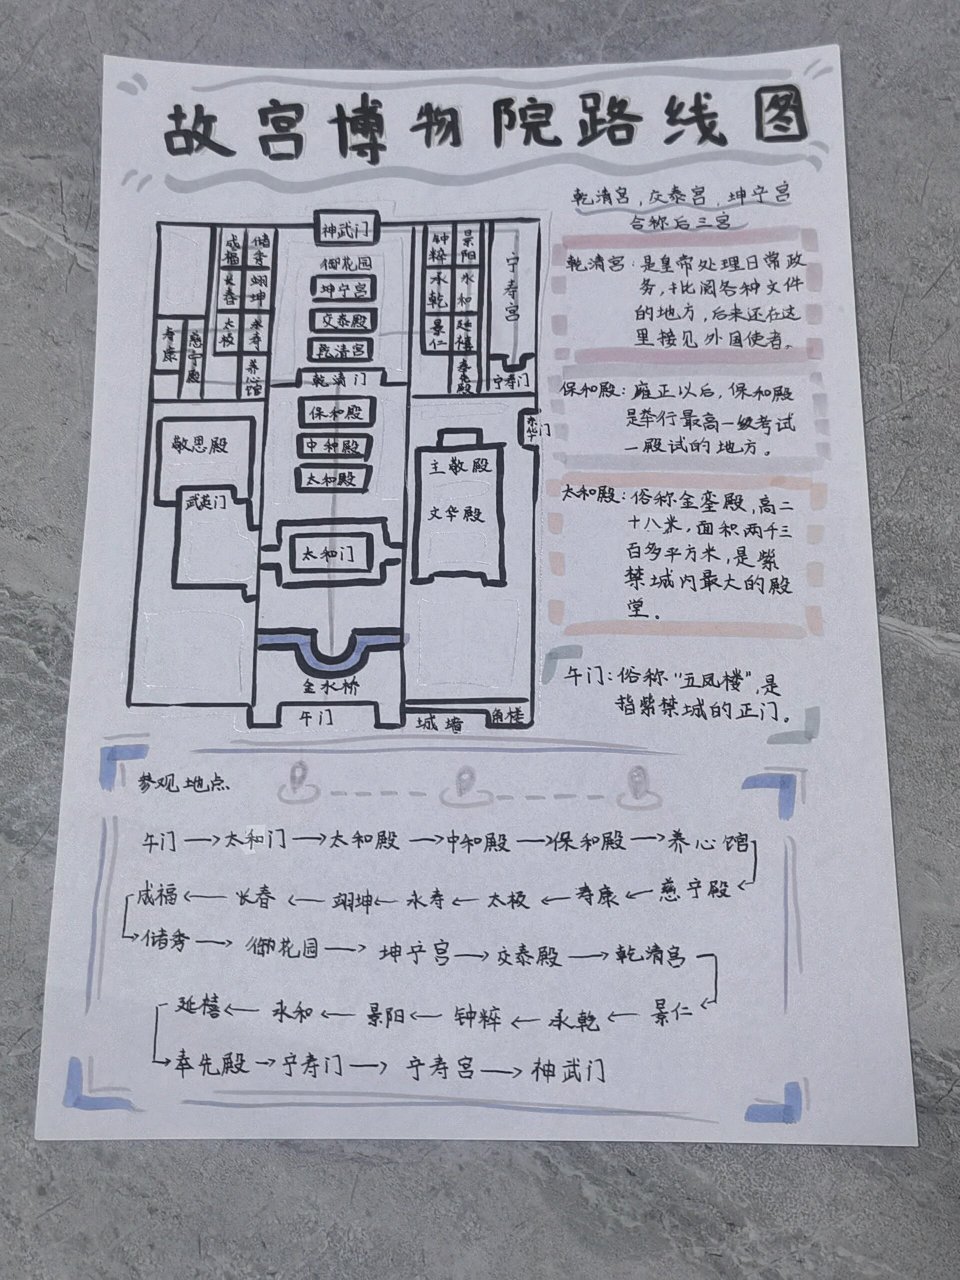 故宫博物院路线图
乾清宫，交泰宫，坤宁宫
合称后三宫
乾清宫：是皇帝处理日常政
务，批阅各种文件
的地方，后来还在这
里接见外国使者。
保和殿：雍正以后，保和殿
是举行最高一级考试
—殿试的地方。
太和殿：俗称金銮殿，高二
十八米，面积两千三
百多平方米，是紫
禁城内最大的殿
堂。
午门：俗称“五凤楼”，是
指紫禁城的正门。
神武门
御花园
坤宁宫
交泰殿
乾清宫
乾清门
保和殿
中和殿
太和殿
太和门
金水桥
午门
城墙
角楼
咸福
储秀
长春
翊坤
太极
永寿
养心馆
寿康
慈宁殿
敬思殿
武英门
钟粹
景阳
承乾
永和
景仁
延禧
奉先殿
宁寿宫
宁寿门
东华门
主敬殿
文华殿
参观地点
午门→太和门→太和殿→中和殿→保和殿→养心馆
成福←长春←翊坤←永寿←太极←寿康←慈宁殿
储秀→御花园→坤宁宫→交泰殿→乾清宫
延禧←永和←景阳←钟粹←承乾←景仁
奉先殿→宁寿门→宁寿宫→神武门